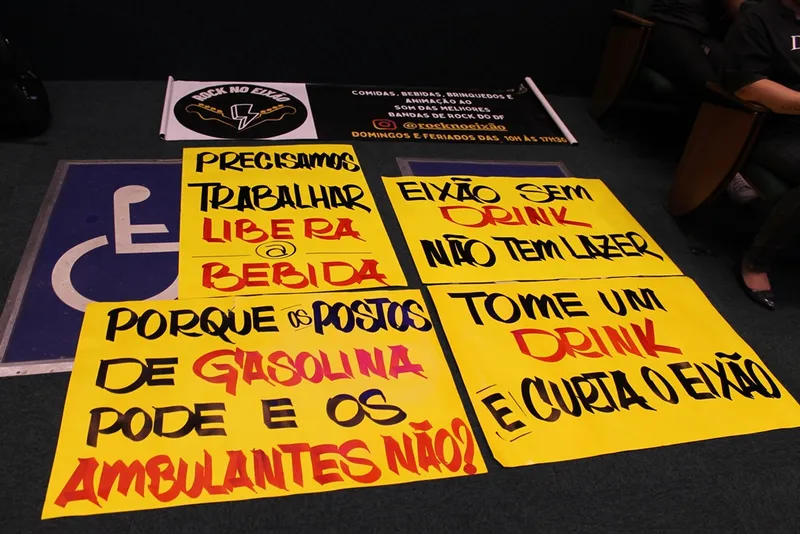 ROCK NO EIXÃO
COMIDAS, BEBIDAS, BRINQUEDOS E
ANIMAÇÃO AO
SOM DAS MELHORES
BANDAS DE ROCK DO DF
@rocknoeixão
DOMINGOS E FERIADOS DAS 10H ÀS 17H30
PRECISAMOS
TRABALHAR
LIBERA
@
BEBIDA
EIXÃO SEM
DRINK
NÃO TEM LAZER
PORQUE OS POSTOS
DE GASOLINA
PODE E OS
AMBULANTES NÃO?
TOME UM
DRINK
E CURTA O EIXÃO